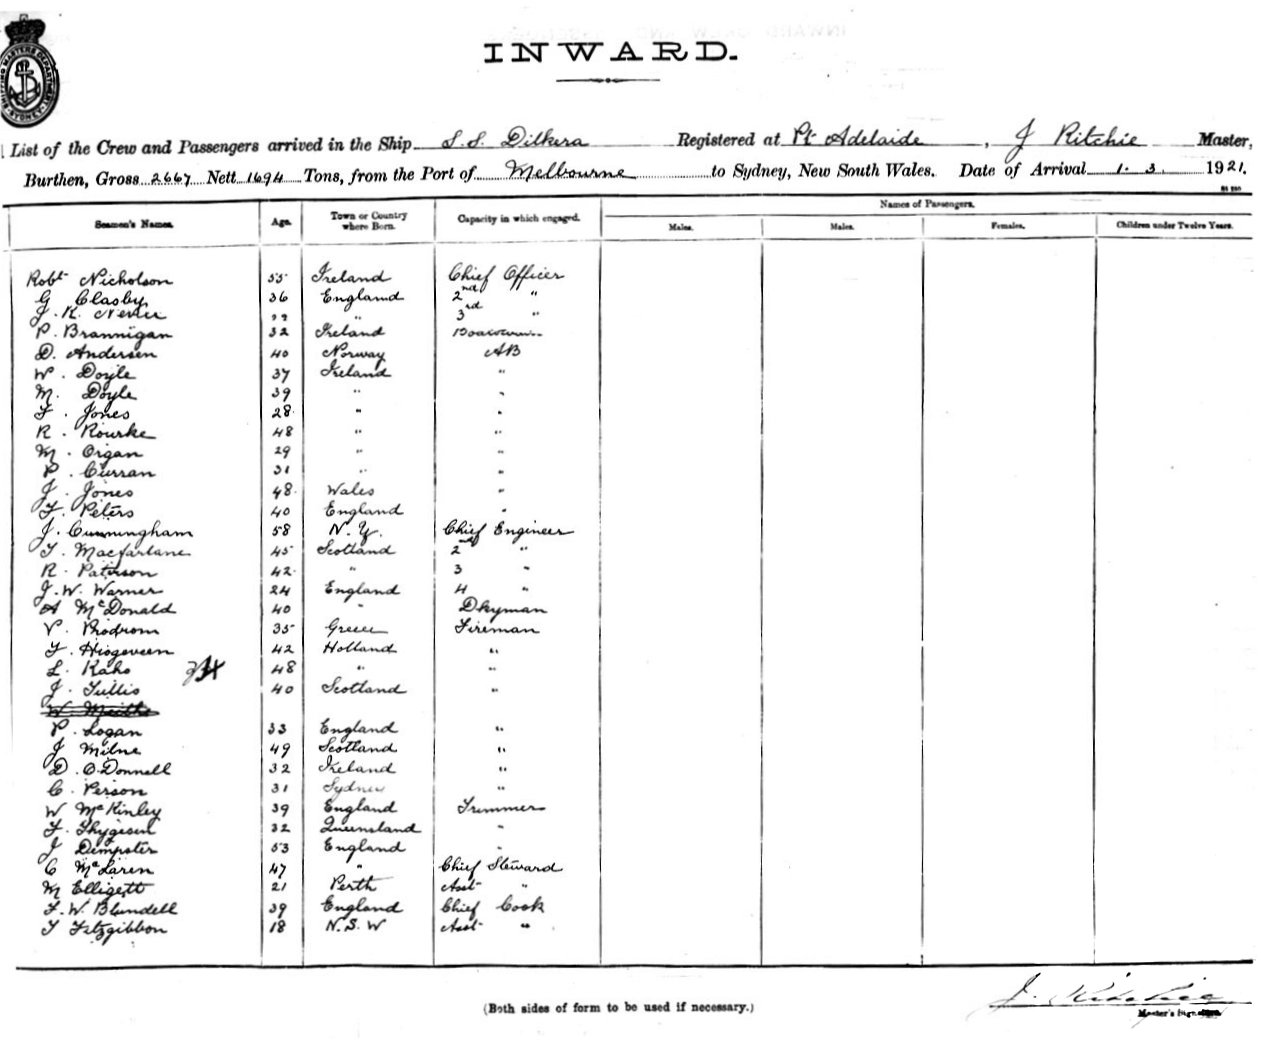 INWARD.
SHIPPING MASTERS DEPARTMENT SYDNEY
List of the Crew and Passengers arrived in the Ship S.S. Dilkera Registered at Pt Adelaide, J Ritchie Master,
Burthen, Gross 2667 Nett 1694 Tons, from the Port of Melbourne to Sydney, New South Wales. Date of Arrival 1. 3. 1921.
Names of Passengers.
Seamen's Names. Age. Town or Country where Born. Capacity in which engaged. Males. Males. Females. Children under Twelve Years.
Robt Nicholson 55 Ireland Chief Officer
G Clasby 36 England 2nd "
J. K. 22 " 3rd "
P. Brannigan 32 Ireland
D. Andersen 40 Norway AB
W. Doyle 37 Ireland "
M. Doyle 39 " "
F. Jones 28 " "
R. Rourke 48 " "
M. Organ 29 " "
P. Curran 31 " "
J. Jones 48 Wales "
F. Peters 40 England "
J. Cunningham 58 N.Y. Chief Engineer
T. Macfarlane 45 Scotland 2nd "
R. Paterson 42 " 3 "
J. W. Warner 24 England 4 "
A McDonald 40 " Dkyman
P. Prodrom 35 Greece Fireman
F. Hisgeveen 42 Holland "
L. Kaho 48 " "
J. Tullis 40 Scotland "
P. Logan 33 England "
J Milne 49 Scotland "
D. O.Donnell 32 Ireland "
C. Person 31 Sydney "
W McKinley 39 England Trimmer
F. Thygesen 32 Queensland "
J Dempster 53 England "
C McLaren 47 " Chief Steward
M Elligett 21 Perth Asst "
F. W. Blundell 39 England Chief Cook
T Fitzgibbon 18 N.S.W Asst "
(Both sides of form to be used if necessary.)
J. Ritchie
Master's Signature.